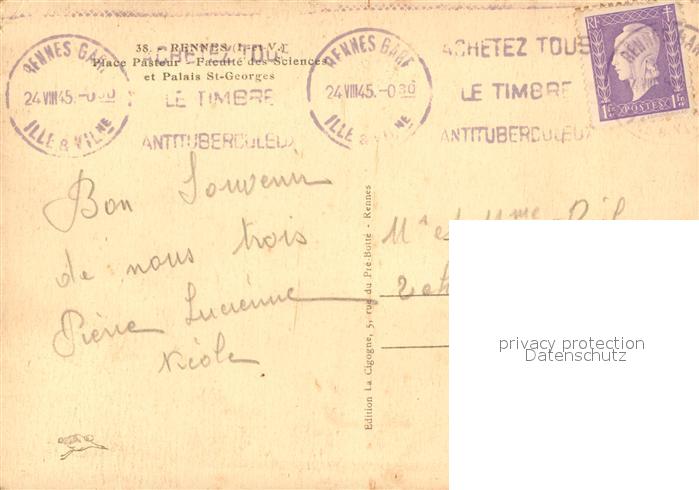 38. - RENNES (I.-et-V.)
Place Pasteur - Faculté des Sciences
et Palais St-Georges
RENNES GARE
24 VIII 45. - 0 30
ILLE & VILNE
ACHETEZ TOUS
LE TIMBRE
ANTITUBERCULEUX
RENNES GARE
24 VIII 45. - 0 30
ILLE & VILNE
ACHETEZ TOUS
LE TIMBRE
ANTITUBERCULEUX
RF
1F POSTES 1F
Bon Souvenir
de nous trois
Pierre Lucienne
Nicole
Edition La Cigogne, 5, rue du Pré-Botté - Rennes
Mr et Mme
privacy protection
Datenschutz